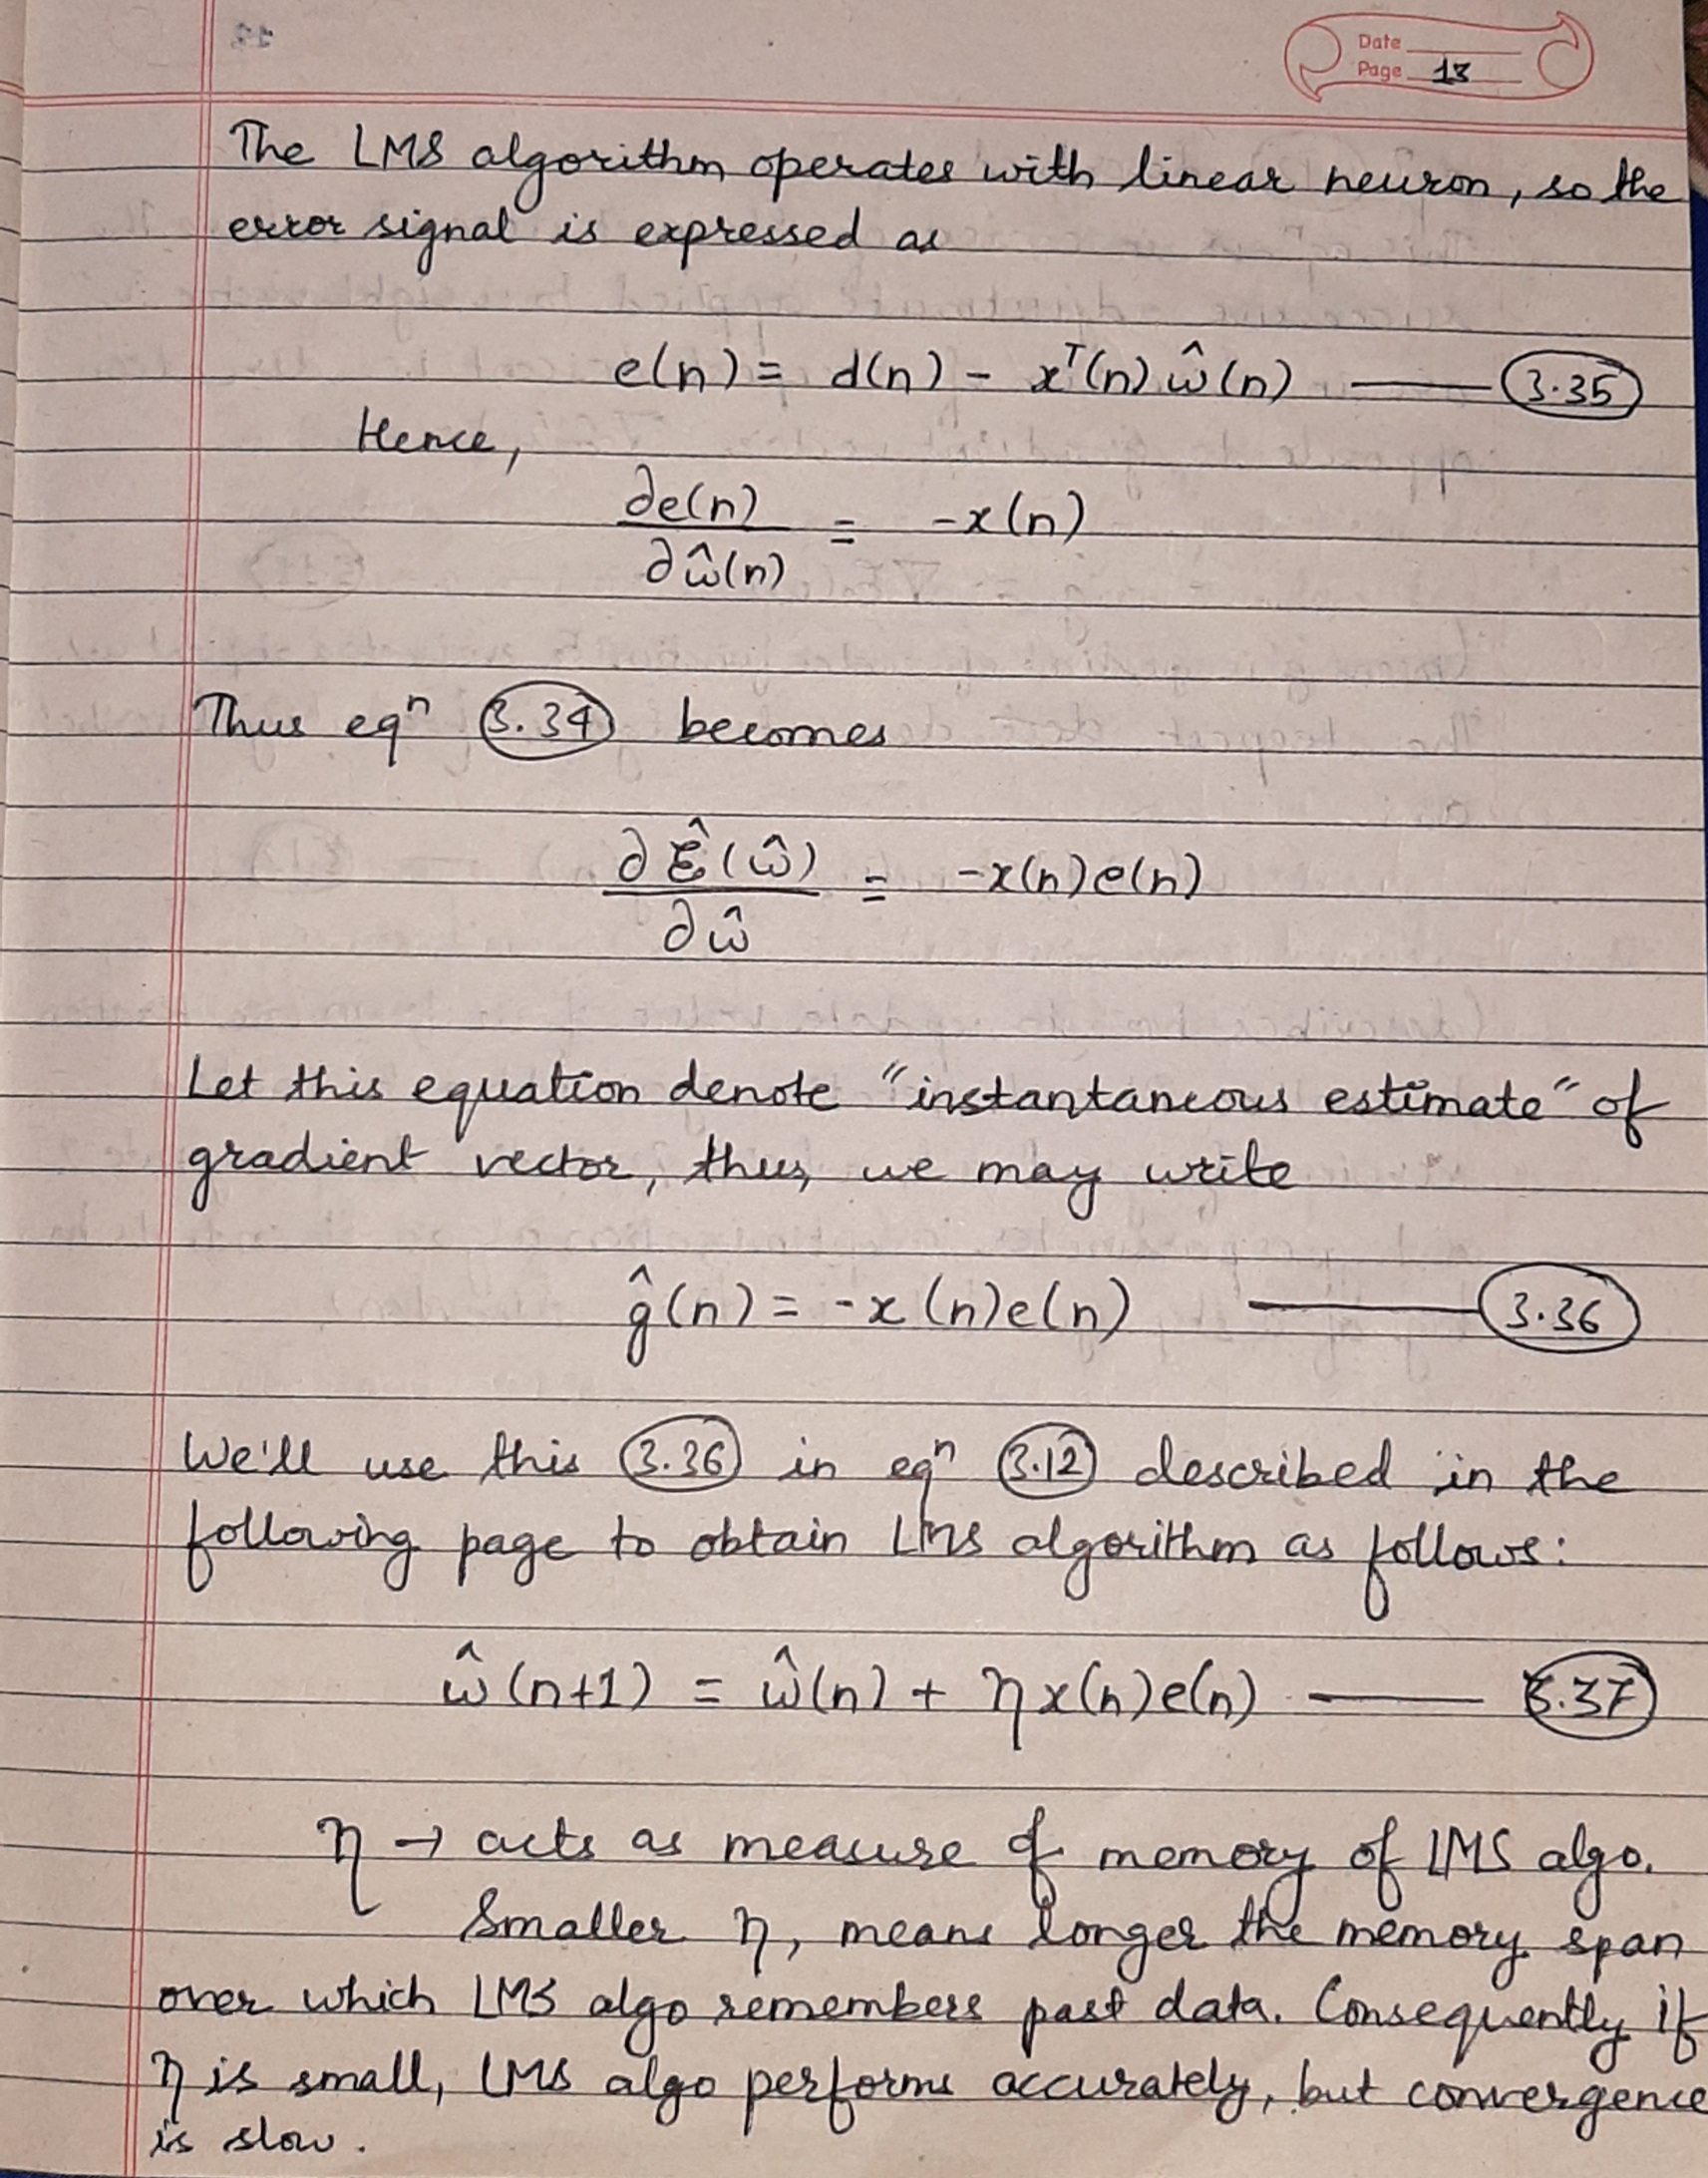 Date
Page 13
The LMS algorithm operates with linear neuron, so the
error signal is expressed as
e(n) = d(n) - xᵀ(n) ŵ(n) —— 3.35
Hence,
∂e(n)
∂ŵ(n)
= -x(n)
Thus eqⁿ 3.34 becomes
∂ℰ̂(ŵ)
∂ŵ
= -x(n)e(n)
Let this equation denote "instantaneous estimate" of
gradient vector, thus, we may write
ĝ(n) = -x(n)e(n) —— 3.36
We'll use this 3.36 in eqⁿ 3.12 described in the
following page to obtain LMS algorithm as follows:
ŵ(n+1) = ŵ(n) + ηx(n)e(n) —— 3.37
η → acts as measure of memory of LMS algo.
Smaller η, means longer the memory span
over which LMS algo remembers past data. Consequently if
η is small, LMS algo performs accurately, but convergence
is slow.